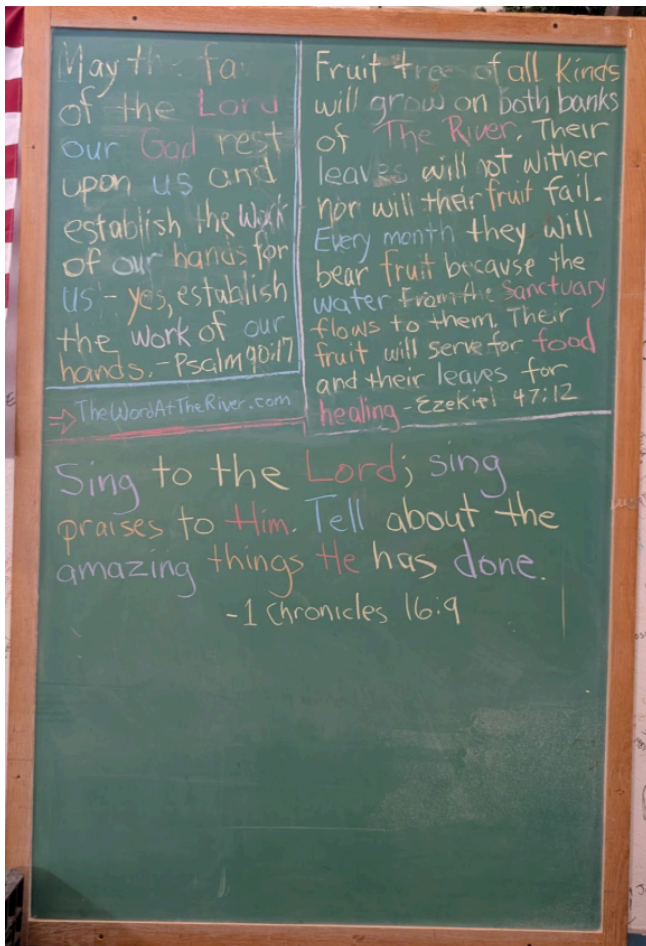 May the fa
of the Lord
our God rest
upon us and
establish the work
of our hands for
us - yes, establish
the work of our
hands. - Psalm 90:17
⇒ TheWordAtTheRiver.com
Fruit tre of all kinds
will grow on both banks
of The River. Their
leaves will not wither
nor will their fruit fail.
Every month they will
bear fruit because the
water From the Sanctuary
flows to them. Their
fruit will serve for food
and their leaves for
healing - Ezekiel 47:12
Sing to the Lord; sing
praises to Him. Tell about the
amazing things He has done.
-1 Chronicles 16:9